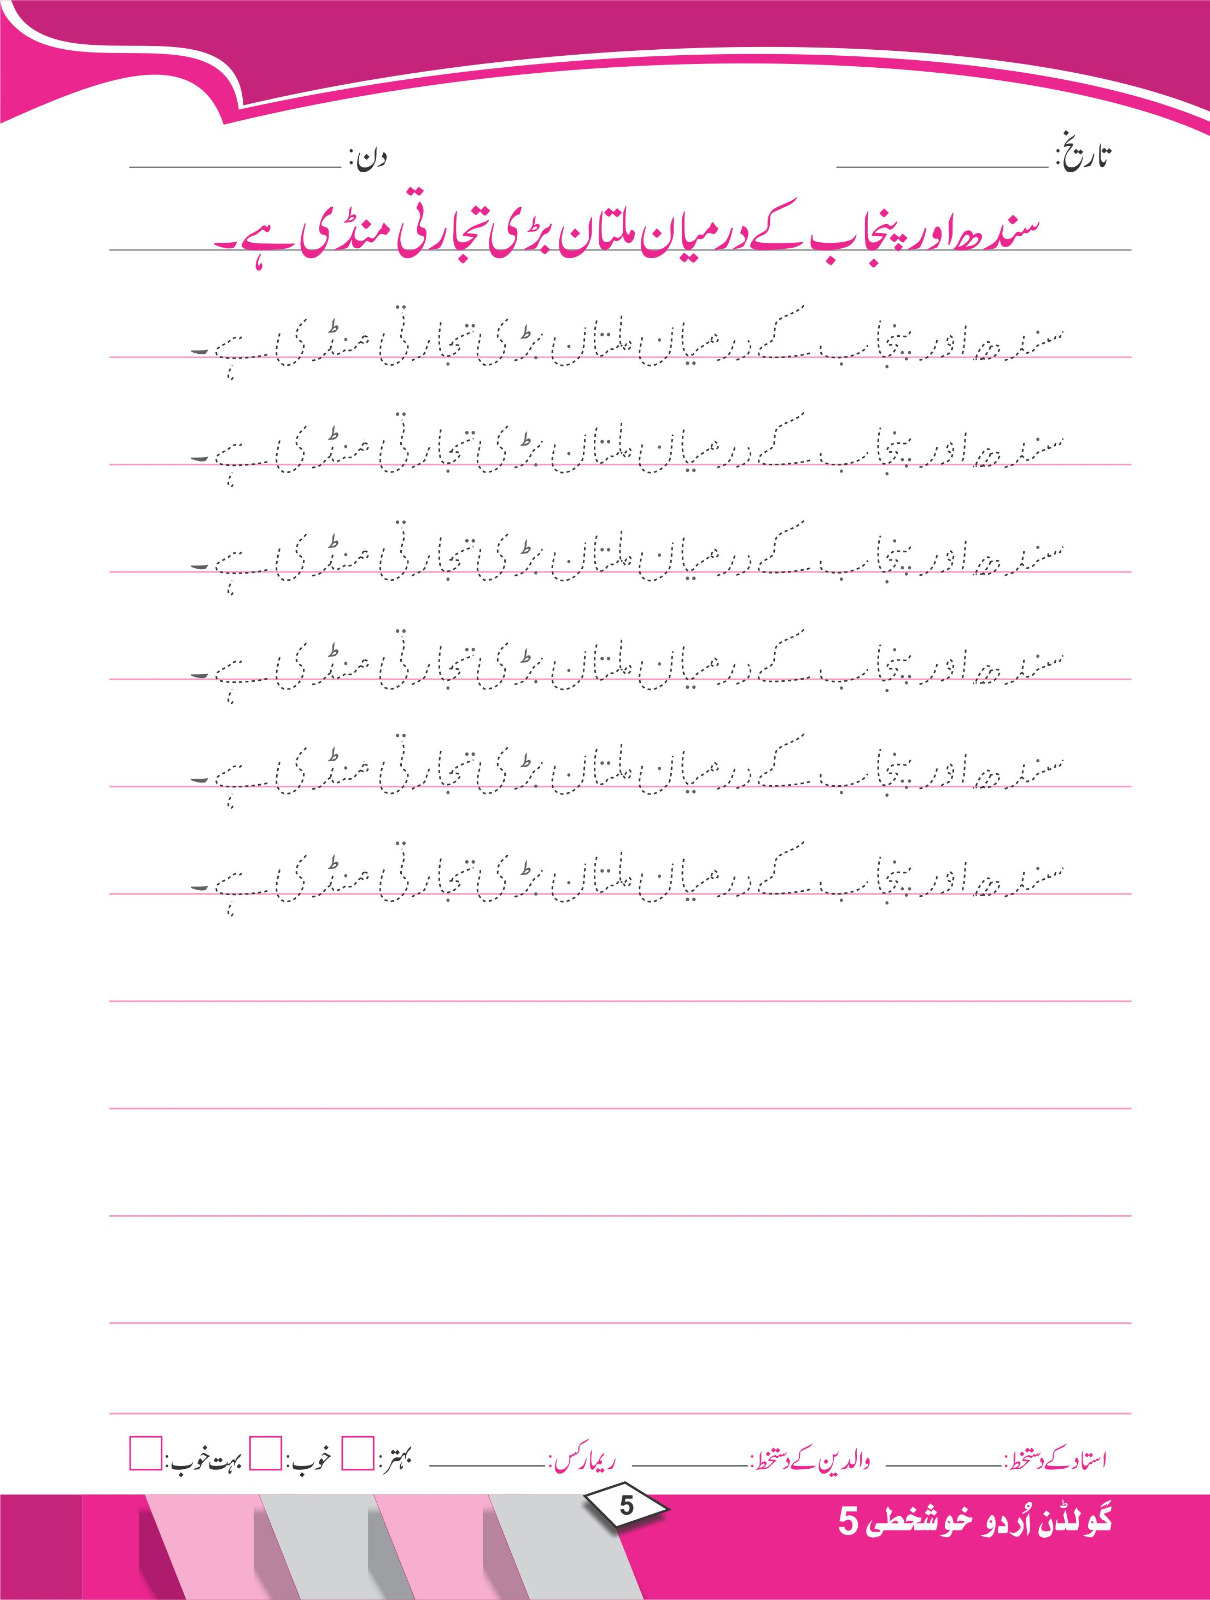 تاریخ: ____________ دن: ____________
سندھ اور پنجاب کے درمیان ملتان بڑی تجارتی منڈی ہے۔
سندھ اور پنجاب کے درمیان ملتان بڑی تجارتی منڈی ہے۔
سندھ اور پنجاب کے درمیان ملتان بڑی تجارتی منڈی ہے۔
سندھ اور پنجاب کے درمیان ملتان بڑی تجارتی منڈی ہے۔
سندھ اور پنجاب کے درمیان ملتان بڑی تجارتی منڈی ہے۔
سندھ اور پنجاب کے درمیان ملتان بڑی تجارتی منڈی ہے۔
سندھ اور پنجاب کے درمیان ملتان بڑی تجارتی منڈی ہے۔
استاد کے دستخط: ________ والدین کے دستخط: ________ ریمارکس: ________ بہتر: خوب: بہت خوب:
5
گولڈن اُردو خوشخطی 5